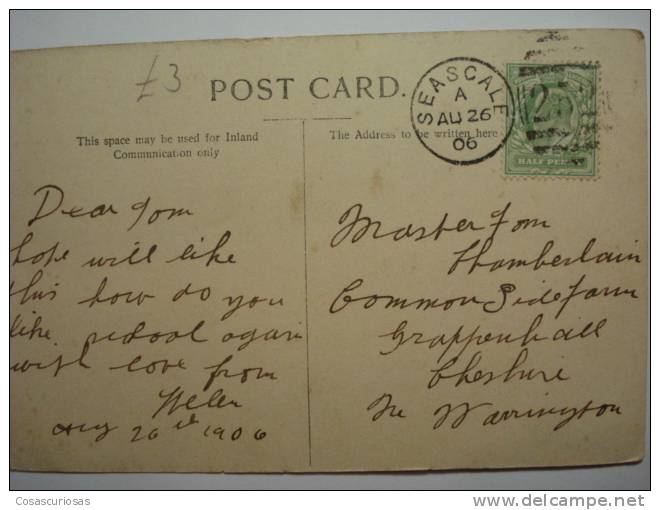 £3
POST CARD.
SEASCALE
A
AU 26
06
HALF PENNY
This space may be used for Inland
Communication only
The Address to be written here
Dear Tom
hope will like
this how do you
like school again
with love from
Helen
Aug 26th 1906
Master Tom
Chamberlain
Common Side farm
Grappenhall
Cheshire
Nr Warrington
Cosascuriosas
www.delcampe.net